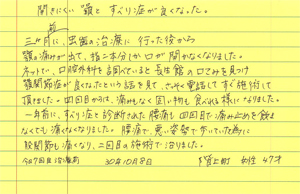 開きにくい顎とすべり症が良くなった。
三ヶ月前に、虫歯の治療に行った後から
顎の痛みが出て、指二本分しか口が開かなくなりました。
ネットで、口腔外科を調べていると 長生館の口コミを見つけ
顎関節症が良くなったという話を見て、さっそく電話してすぐ施術して
頂きました。四回目からは、痛みもなく固い物も食べれる様になりました。
一年前に、すべり症と診断された腰痛も四回目で痛み止めを飲ま
なくても痛くなくなりました。腰痛で、悪い姿勢で歩いていた為に
股関節も痛くなり、二回目の施術で治りました。
今日7回目治療前 30年10月8日 下賀茂町 女性 47才